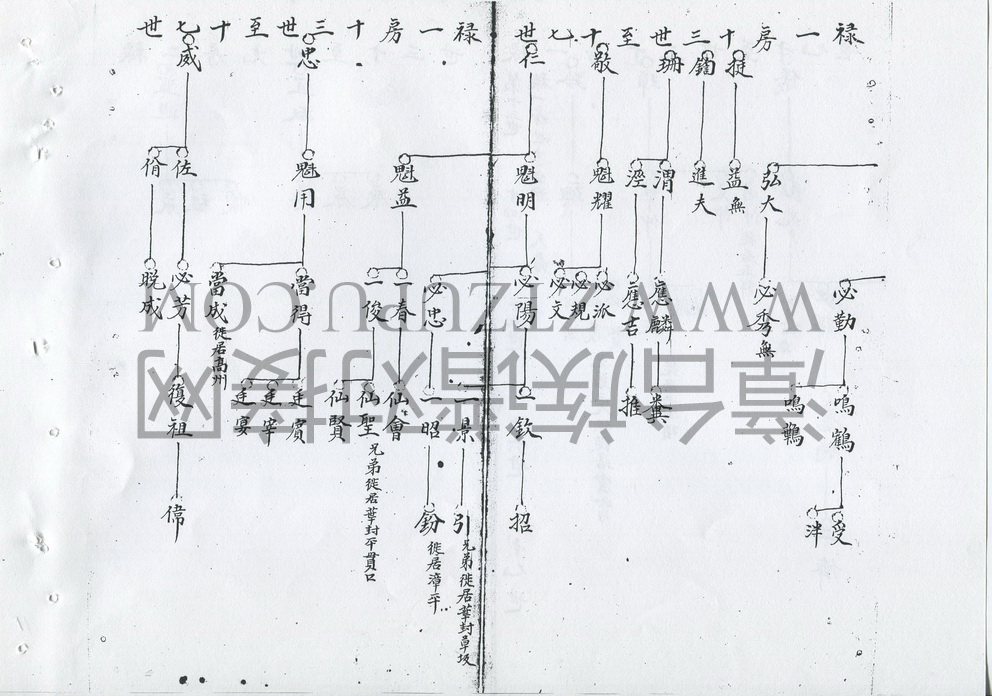 禄一房十三至十七世
禄一房十三世至十七世
掟
鐲
珊
敬
仁
忠
威
弘大
益無
進夫
渭
涇
魁耀
魁明
魁益
魁用
佐
必勤
必秀無
應麟
應吉
必派
必規
必文
必陽
必忠
一春
一俊
當得
當成徙居高州
必芳
晚成
鳴鶴
鳴鸛
糞
推
一欽
一景
一昭
仙會
仙聖
仙賢
兄弟徙居華封平貫口
廷賓
廷宰
廷宴
復祖
受
泮
招
引兄弟徙居華封草坂
鈖徙居漳平
偉
漳台族谱对接网
WWW.ZTZUPU.COM